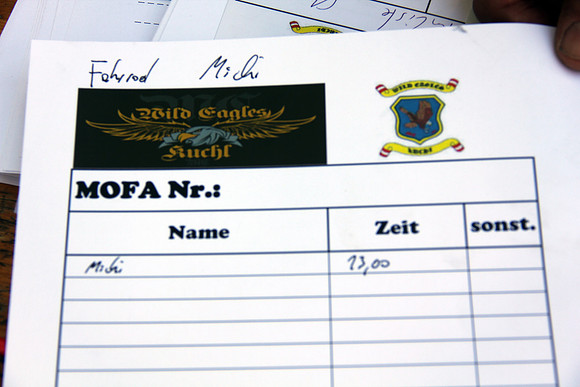 Fahrrad Michi
Wild Eagles
Kuchl
WILD EAGLES
KUCHL
MOFA Nr.:
Name Zeit sonst.
Michi 13,00